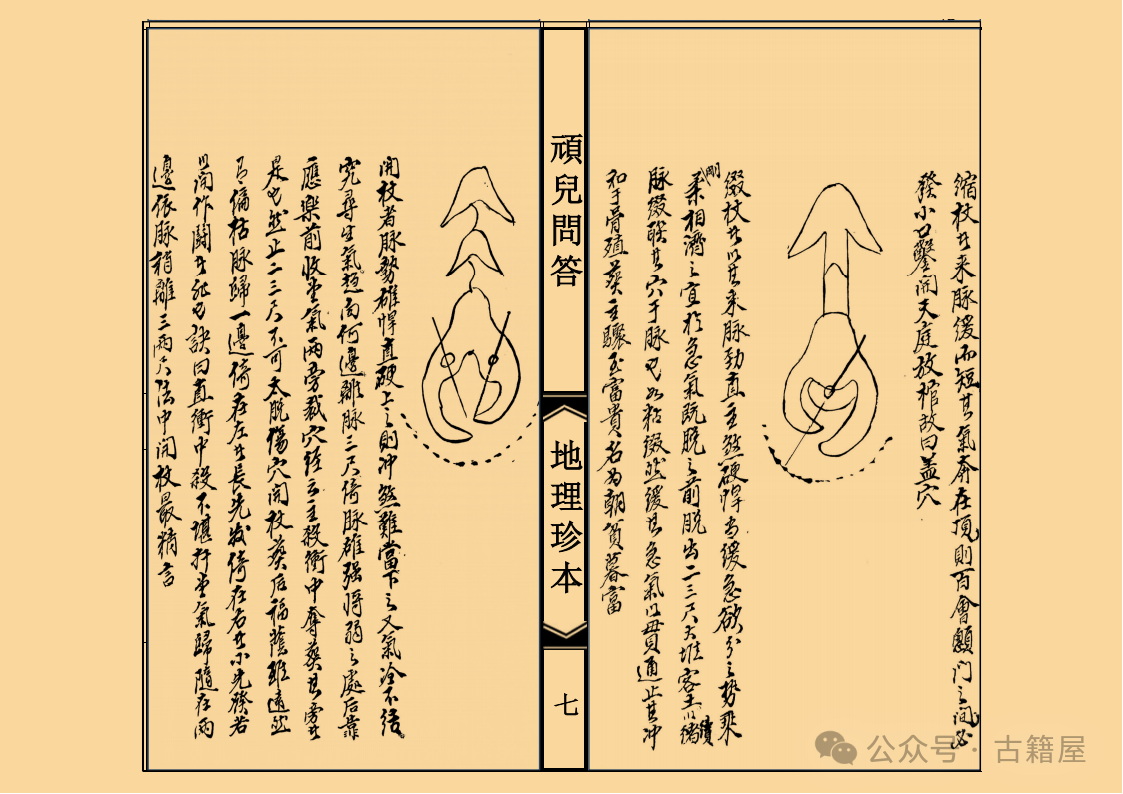 缩杖者来脉缓而短其氣奔在頂則百會顖门之间必
發小口鑿開天庭放棺故曰盖穴
缀杖者以其来脉劲直主煞硬悍当缓急欲分之势乘
剛柔相濟之宜於急氣既脱之前脱出二三尺
脉缀联其穴于脉也如粘缀然缓其急氣以毋貫通止其冲
和于骨殖葬主驟至富貴名为朝貧暮富
頑兒問答
地理珍本
七
開杖者脉勢雄悍直硬上之則冲煞難當下之又氣冷不结
究尋生氣趋向何邊離脉三尺倚脉雄强將弱之處后靠
應樂前收堂氣兩旁裁穴经云主殺衝中奪葬其旁者
是也然止二三尺不可太脱傷穴開杖葬后福蔭雖遠然
有偏枯脉歸一邊倚在左者長先发倚在右者小先發若
以開作闢者非也訣曰直衝中殺不堪扦堂氣歸隨在两
邊依脉稍離三兩尺法中開杖最精言
公众号·古籍屋